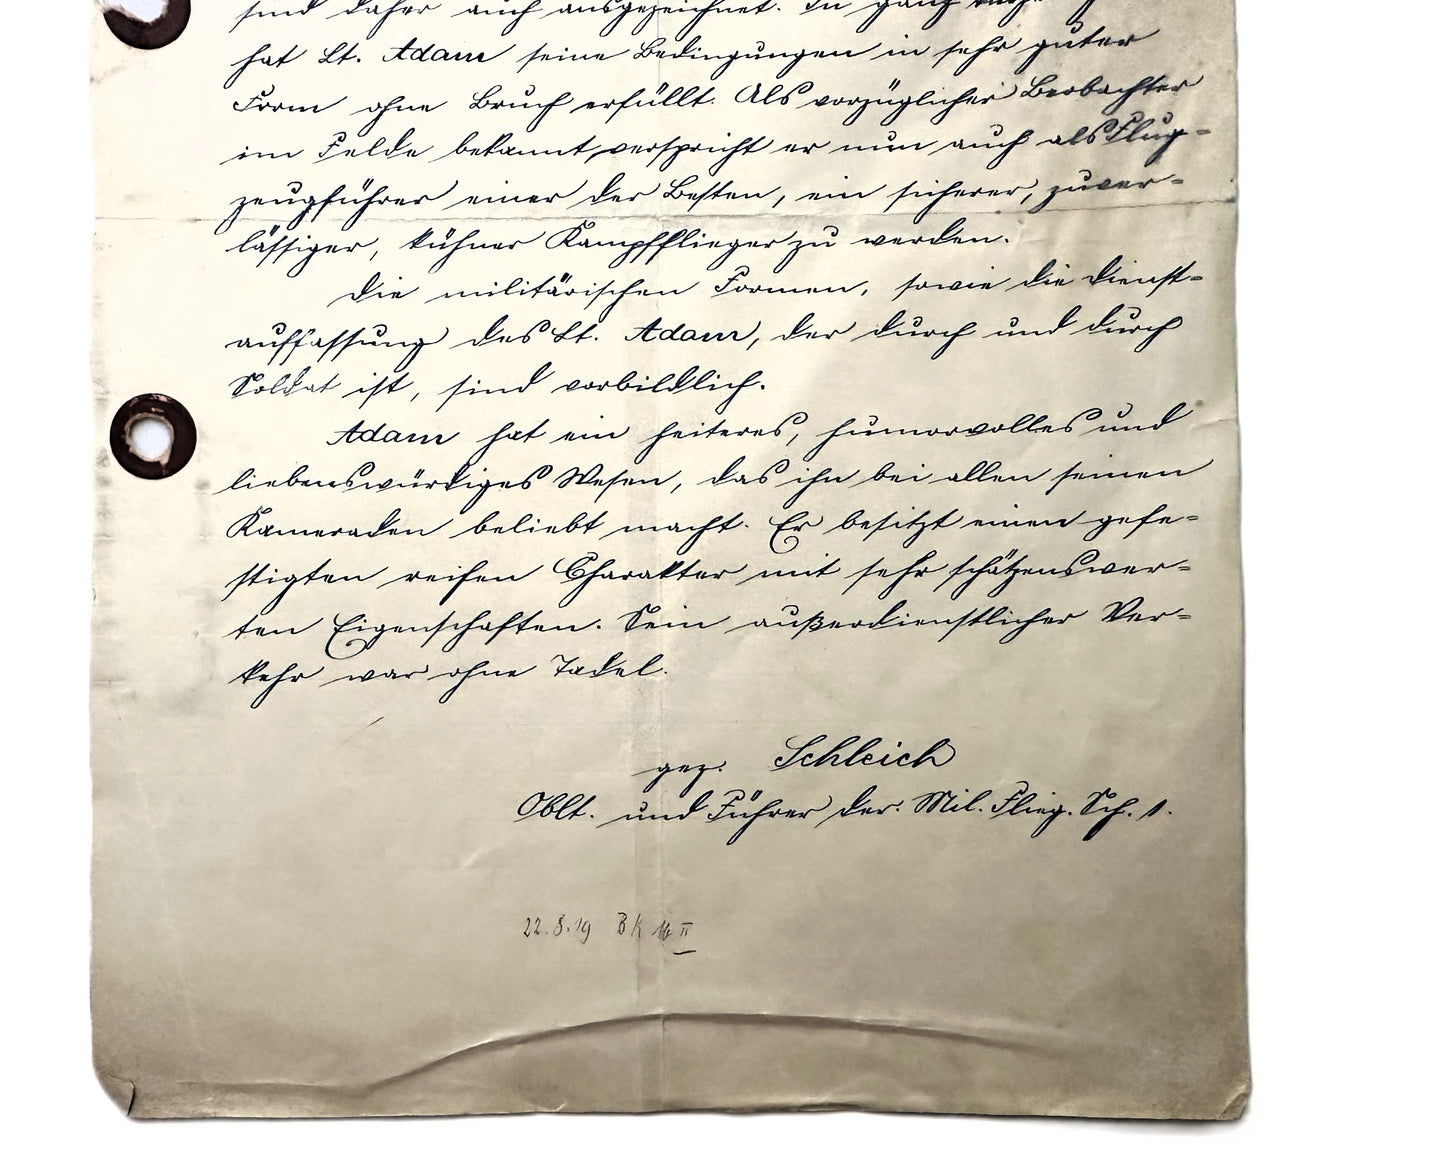 sind daher auch ausgezeichnet. In ganz
hat Lt. Adam seine Bedingungen in sehr guter
Form ohne Bruch erfüllt. Als vorzüglicher Beobachter
im Felde bekannt, verspricht er nun auch als Flug-
zeugführer einer der Besten, ein sicherer, zuver-
lässiger, kühner Kampfflieger zu werden.
Die militärischen Formen, sowie die Dienst-
auffassung des Lt. Adam, der durch und durch
Soldat ist, sind vorbildlich.
Adam hat ein heiteres, humorvolles und
liebenswürdiges Wesen, das ihn bei allen seinen
Kameraden beliebt macht. Er besitzt einen gefe-
stigten reifen Charakter mit sehr schätzenswer-
ten Eigenschaften. Sein außerdienstlicher Ver-
kehr war ohne Tadel.
gez. Schleich
Oblt. und Führer der Mil. Flieg. Sch. 1.
22.8.19 BK 16 II